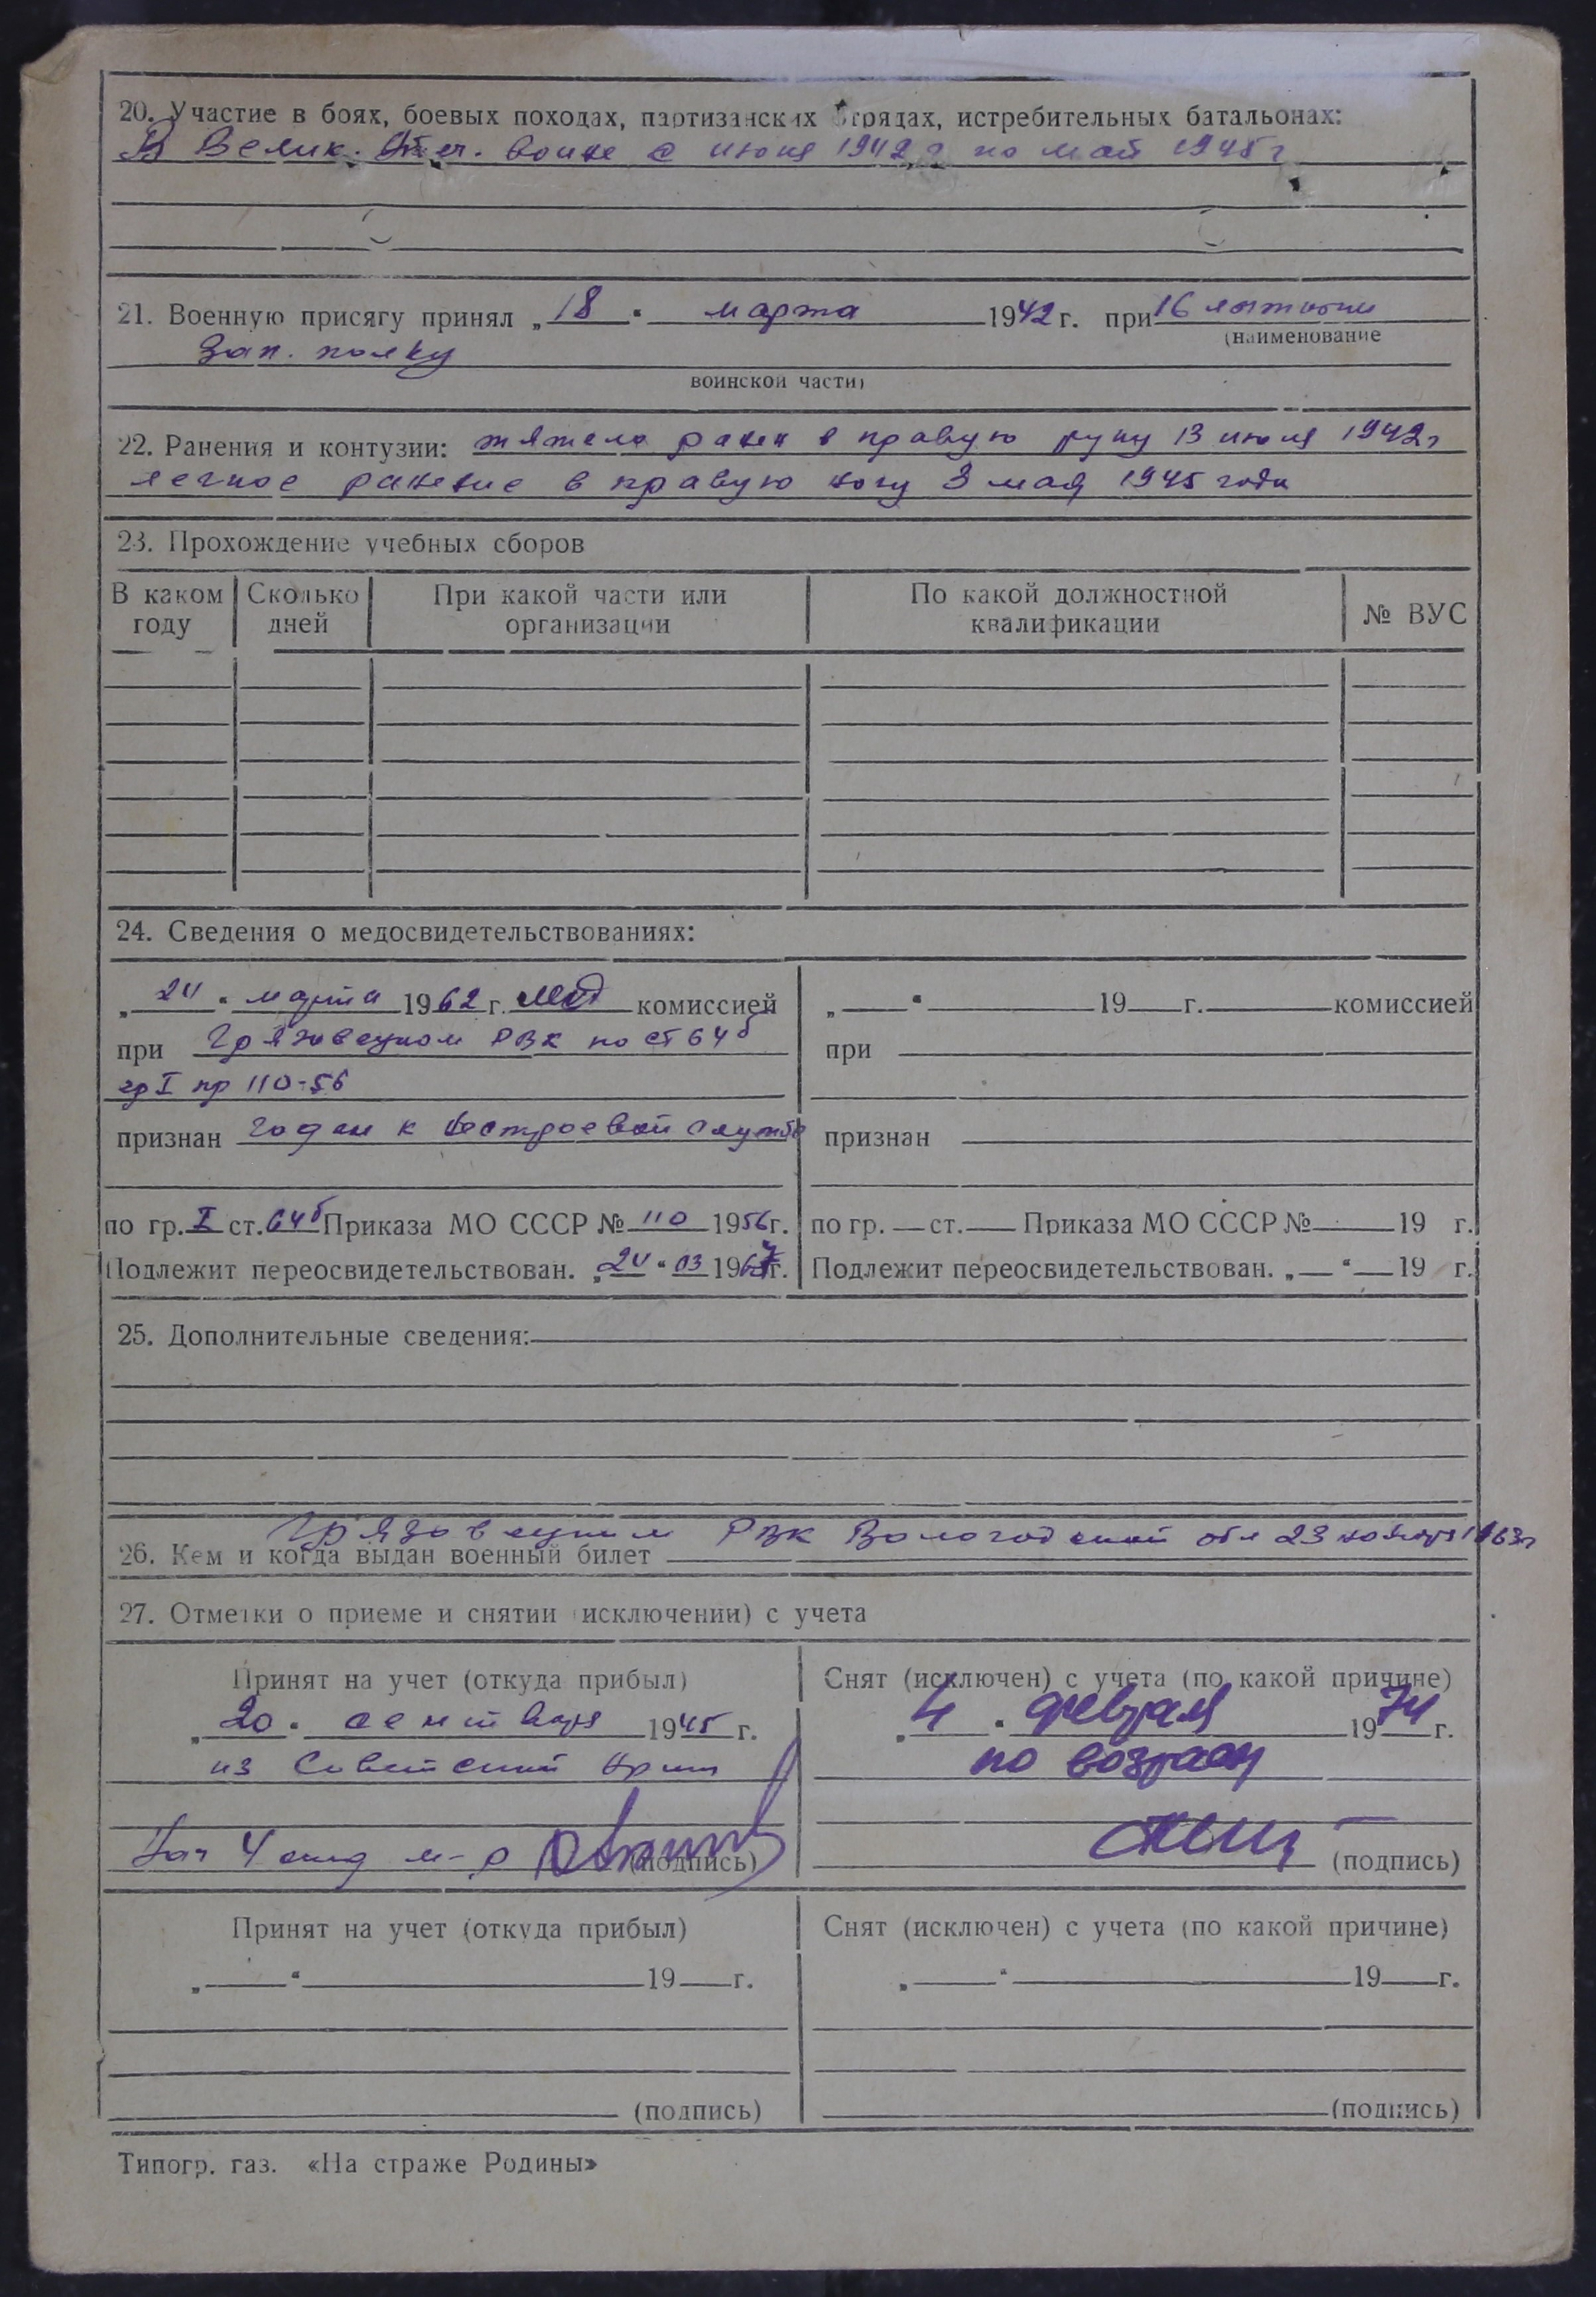 20. Участие в боях, боевых походах, партизанских отрядах, истребительных батальонах:
В Велик. Отеч. войне с июня 1942 г по май 1945 г
21. Военную присягу принял „18“ марта 1942 г. при 16
(наименование
Зап. полку
воинской части)
22. Ранения и контузии: тяжело ранен в правую руку 13 июля 1942 г
легкое ранение в правую ногу 3 мая 1945 года
23. Прохождение учебных сборов
В каком году Сколько дней При какой части или организации По какой должностной квалификации № ВУС
24. Сведения о медосвидетельствованиях:
„24“ марта 1962 г. мед комиссией
при Грязовецком РВК по ст 64б
гр I пр 110-56
признан годен к нестроевой службе
по гр. I ст. 64б Приказа МО СССР № 110 1956 г.
Подлежит переосвидетельствован. „24“ 03 1967 г.
„ “ 19 г. комиссией
при
признан
по гр. ст. Приказа МО СССР № 19 г.
Подлежит переосвидетельствован. „ “ 19 г.
25. Дополнительные сведения:
26. Кем и когда выдан военный билет Грязовецким РВК Вологодской обл 23 ноября 1963 г
27. Отметки о приеме и снятии (исключении) с учета
Принят на учет (откуда прибыл)
„20“ сентября 1945 г.
из Советской Армии
Нач 4 отд м-р
(подпись)
Снят (исключен) с учета (по какой причине)
„4“ февраля 1974 г.
по возрасту
(подпись)
Принят на учет (откуда прибыл)
„ “ 19 г.
(подпись)
Снят (исключен) с учета (по какой причине)
„ “ 19 г.
(подпись)
Типогр. газ. «На страже Родины»